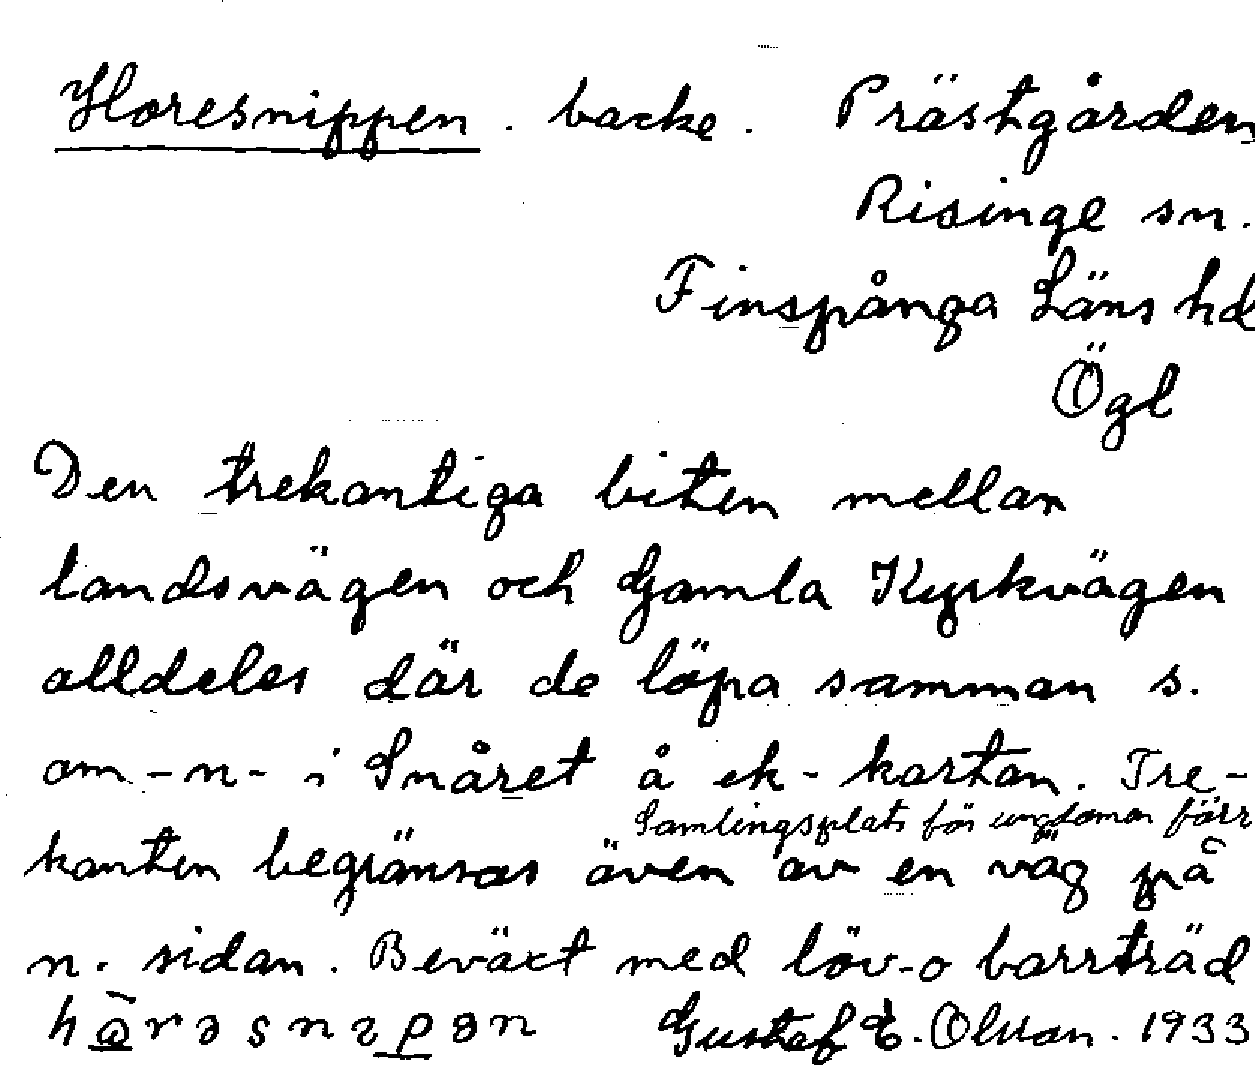 Horesnippen. backe. Prästgården
Risinge sn.
Finspånga Läns hd
Ögl
Den trekantiga biten mellan
landsvägen och Gamla Kyrkvägen
alldeles där de löpa samman s.
om -n- i Snåret å ek-kartan. Tre-
Samlingsplats för ungdomar förr
kanten begränsas även av en väg på
n. sidan. Beväxt med löv-o barrträd
Gustaf E. Olsson. 1933